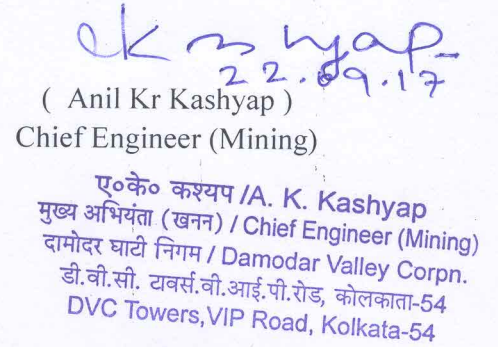 ak kashyap
22.09.17
( Anil Kr Kashyap )
Chief Engineer (Mining)
ए०के० कश्यप /A. K. Kashyap
मुख्य अभियंता (खनन) / Chief Engineer (Mining)
दामोदर घाटी निगम / Damodar Valley Corpn.
डी.वी.सी. टावर्स.वी.आई.पी.रोड, कोलकाता-54
DVC Towers,VIP Road, Kolkata-54